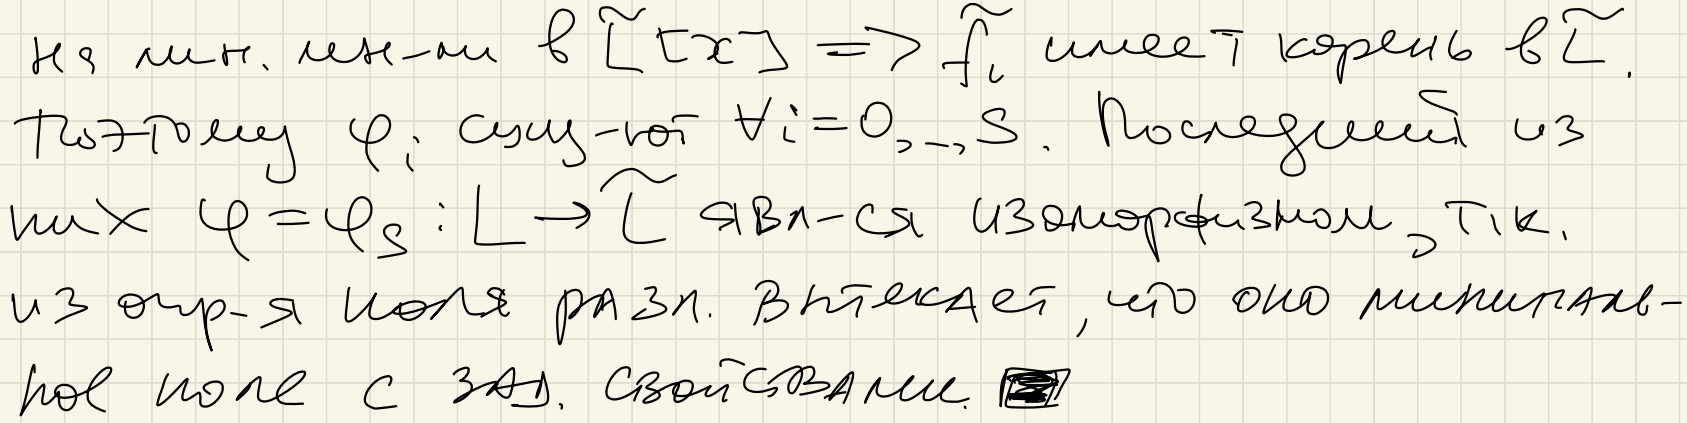 на лин. мн-ли в L̃[x] => f̃ᵢ имеет корень в L̃.
Поэтому φᵢ сущ-ют ∀i=0,..,s. Последний из
них φ=φₛ: L → L̃ явл-ся изоморфизмом, т.к.
из опр-я поля разл. вытекает, что оно минималь-
ное поле с зад. свойствами. ■